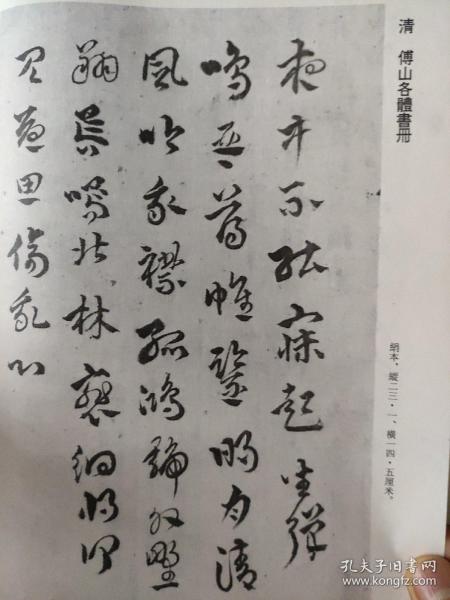 清 傅山各體書冊
絹本，縱二三·一、橫一四·五厘米。
夜中不能寐起坐彈
鳴琴薄帷鑒明月清
風吹我襟孤鴻號外野
翔鳥鳴北林裴徊將何
見憂思獨傷心
孔夫子旧书网
www.kongfz.com